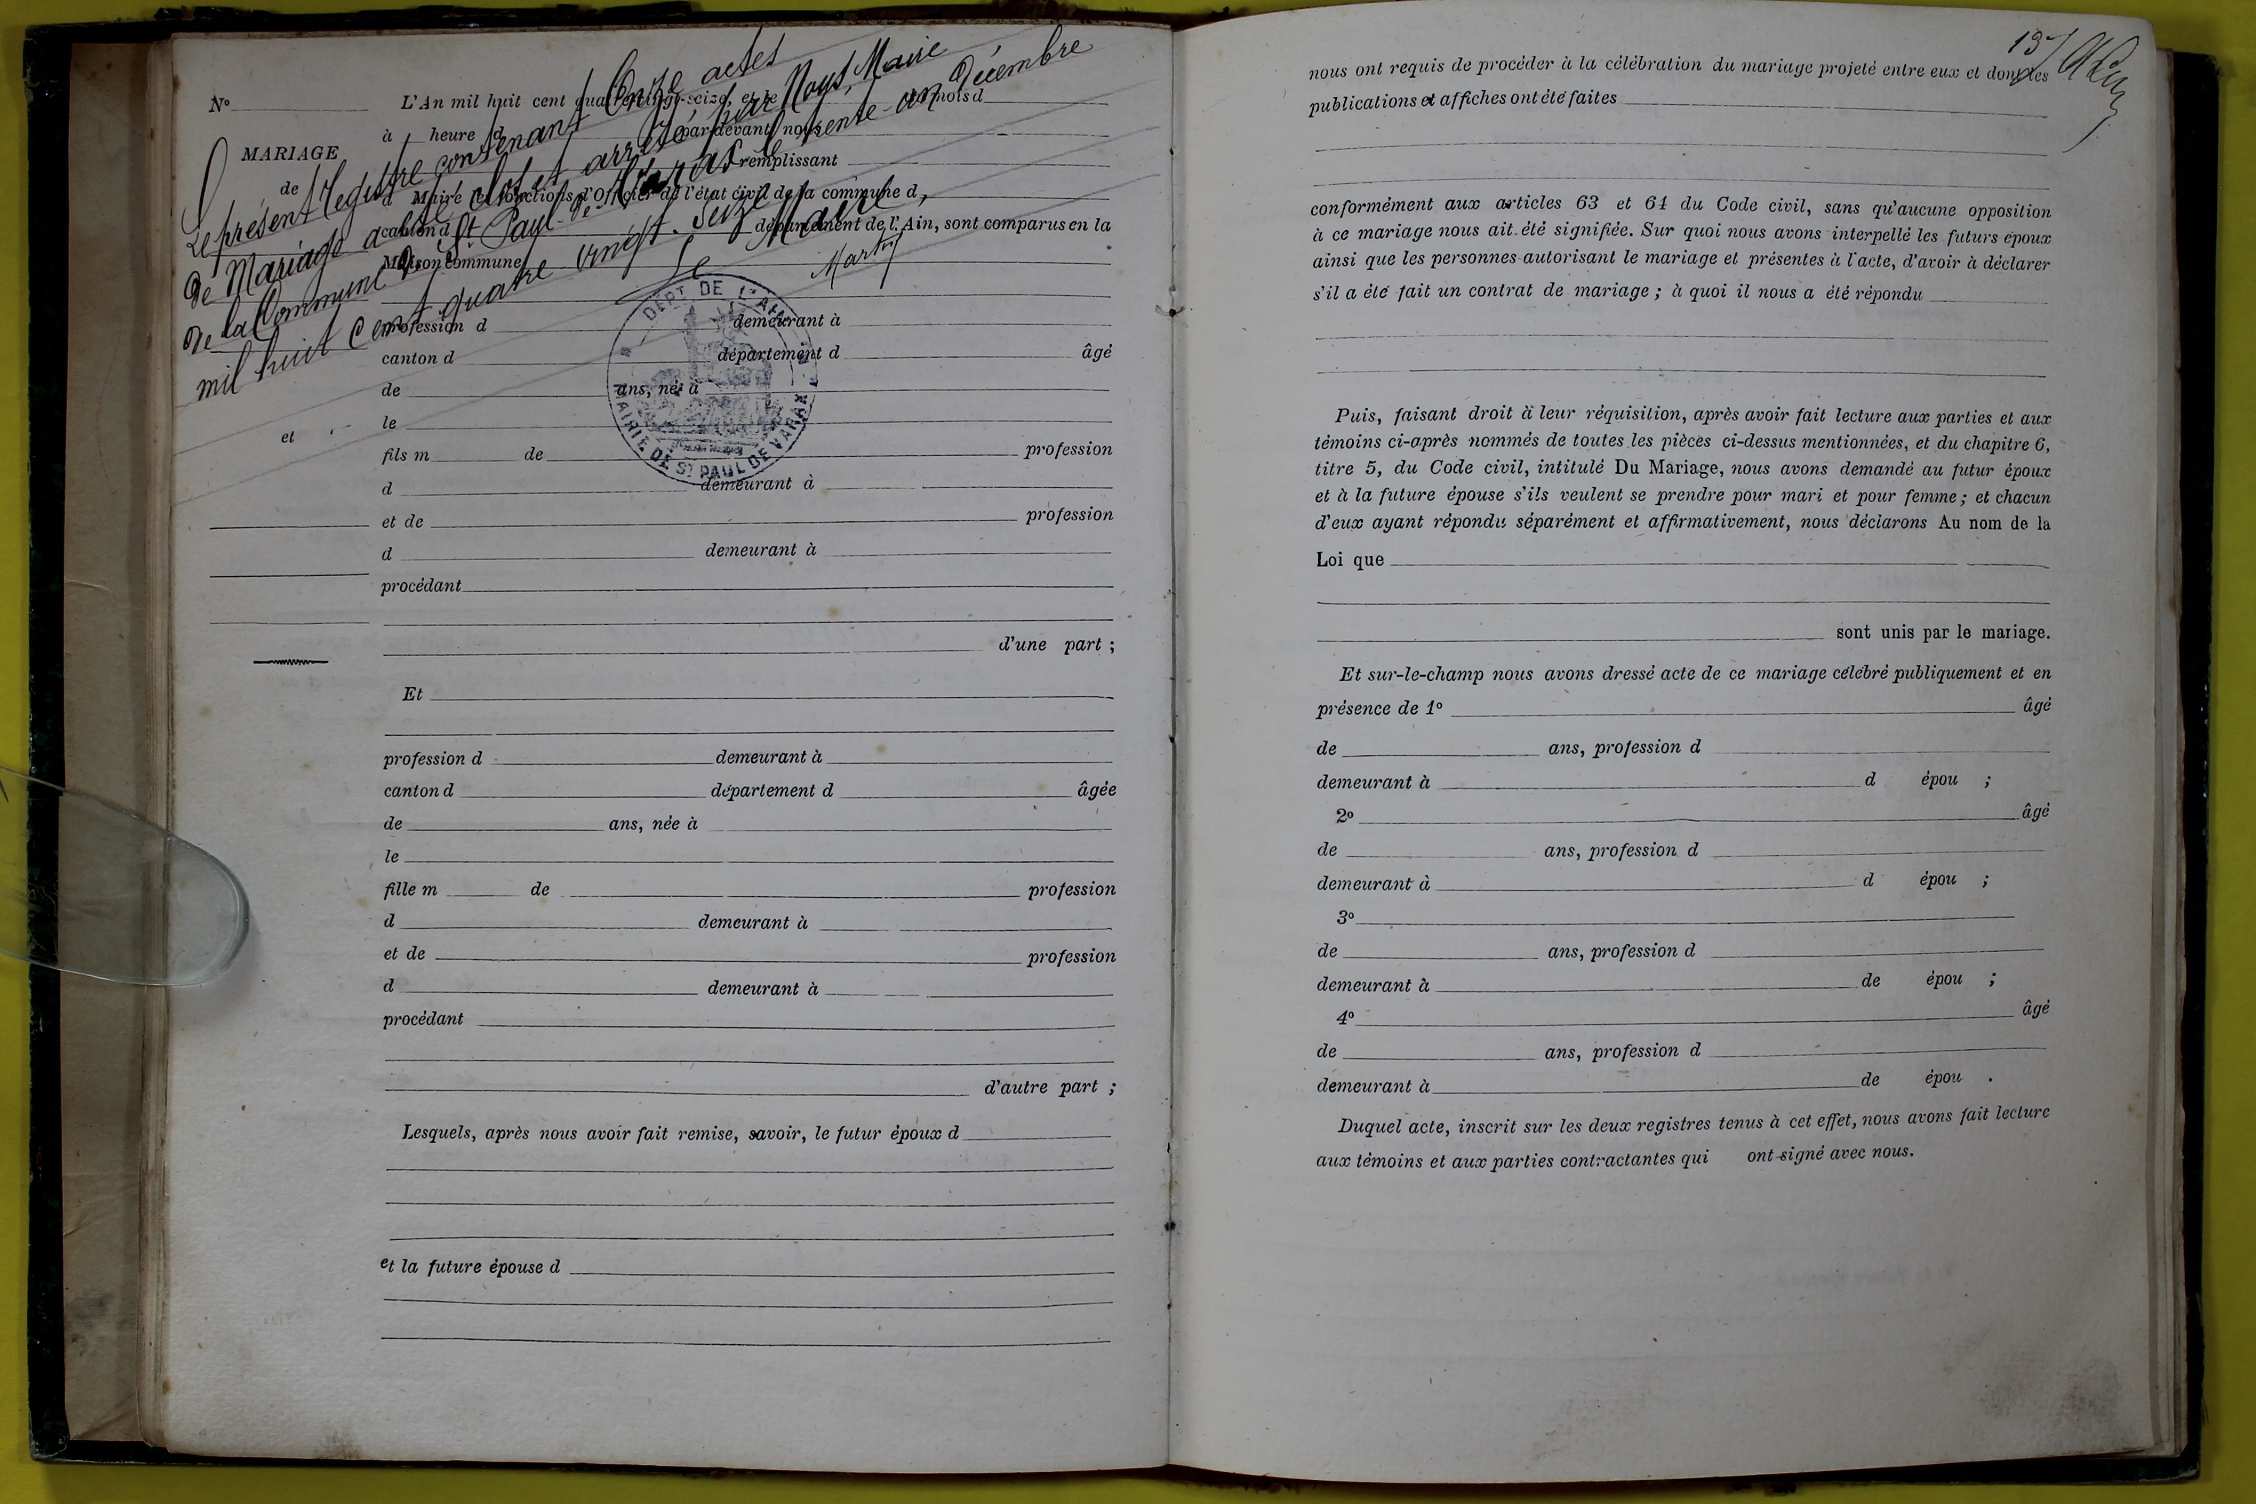 Le présent registre contenant Onze actes
de Mariage a été clos et arrêté par Nous, Maire
de la Commune de St Paul-de-Varax le trente-un Décembre
mil huit cent quatre vingt-seize
Le Maire
Martin
DÉPT DE L'AIN
MAIRIE DE ST PAUL DE VARAX
No
MARIAGE
de
et
L'An mil huit cent quatre-vingt-seize, et le du mois d
à heure d par-devant nous
remplissant
d Maire les fonctions d'Officier de l'état civil de la commune d
canton d département de l'Ain, sont comparus en la
Maison commune
profession d demeurant à
canton d département d âgé
de ans, né à
le
fils m de profession
d demeurant à
et de profession
d demeurant à
procédant
d'une part ;
Et
profession d demeurant à
canton d département d âgée
de ans, née à
le
fille m de profession
d demeurant à
et de profession
d demeurant à
procédant
d'autre part ;
Lesquels, après nous avoir fait remise, savoir, le futur époux d
et la future épouse d
137
nous ont requis de procéder à la célébration du mariage projeté entre eux et dont les
publications et affiches ont été faites
conformément aux articles 63 et 64 du Code civil, sans qu'aucune opposition
à ce mariage nous ait été signifiée. Sur quoi nous avons interpellé les futurs époux
ainsi que les personnes autorisant le mariage et présentes à l'acte, d'avoir à déclarer
s'il a été fait un contrat de mariage ; à quoi il nous a été répondu
Puis, faisant droit à leur réquisition, après avoir fait lecture aux parties et aux
témoins ci-après nommés de toutes les pièces ci-dessus mentionnées, et du chapitre 6,
titre 5, du Code civil, intitulé Du Mariage, nous avons demandé au futur époux
et à la future épouse s'ils veulent se prendre pour mari et pour femme ; et chacun
d'eux ayant répondu séparément et affirmativement, nous déclarons Au nom de la
Loi que
sont unis par le mariage.
Et sur-le-champ nous avons dressé acte de ce mariage célébré publiquement et en
présence de 1o âgé
de ans, profession d
demeurant à d épou ;
2o âgé
de ans, profession d
demeurant à d épou ;
3o
de ans, profession d
demeurant à de épou ;
4o âgé
de ans, profession d
demeurant à de épou .
Duquel acte, inscrit sur les deux registres tenus à cet effet, nous avons fait lecture
aux témoins et aux parties contractantes qui ont signé avec nous.